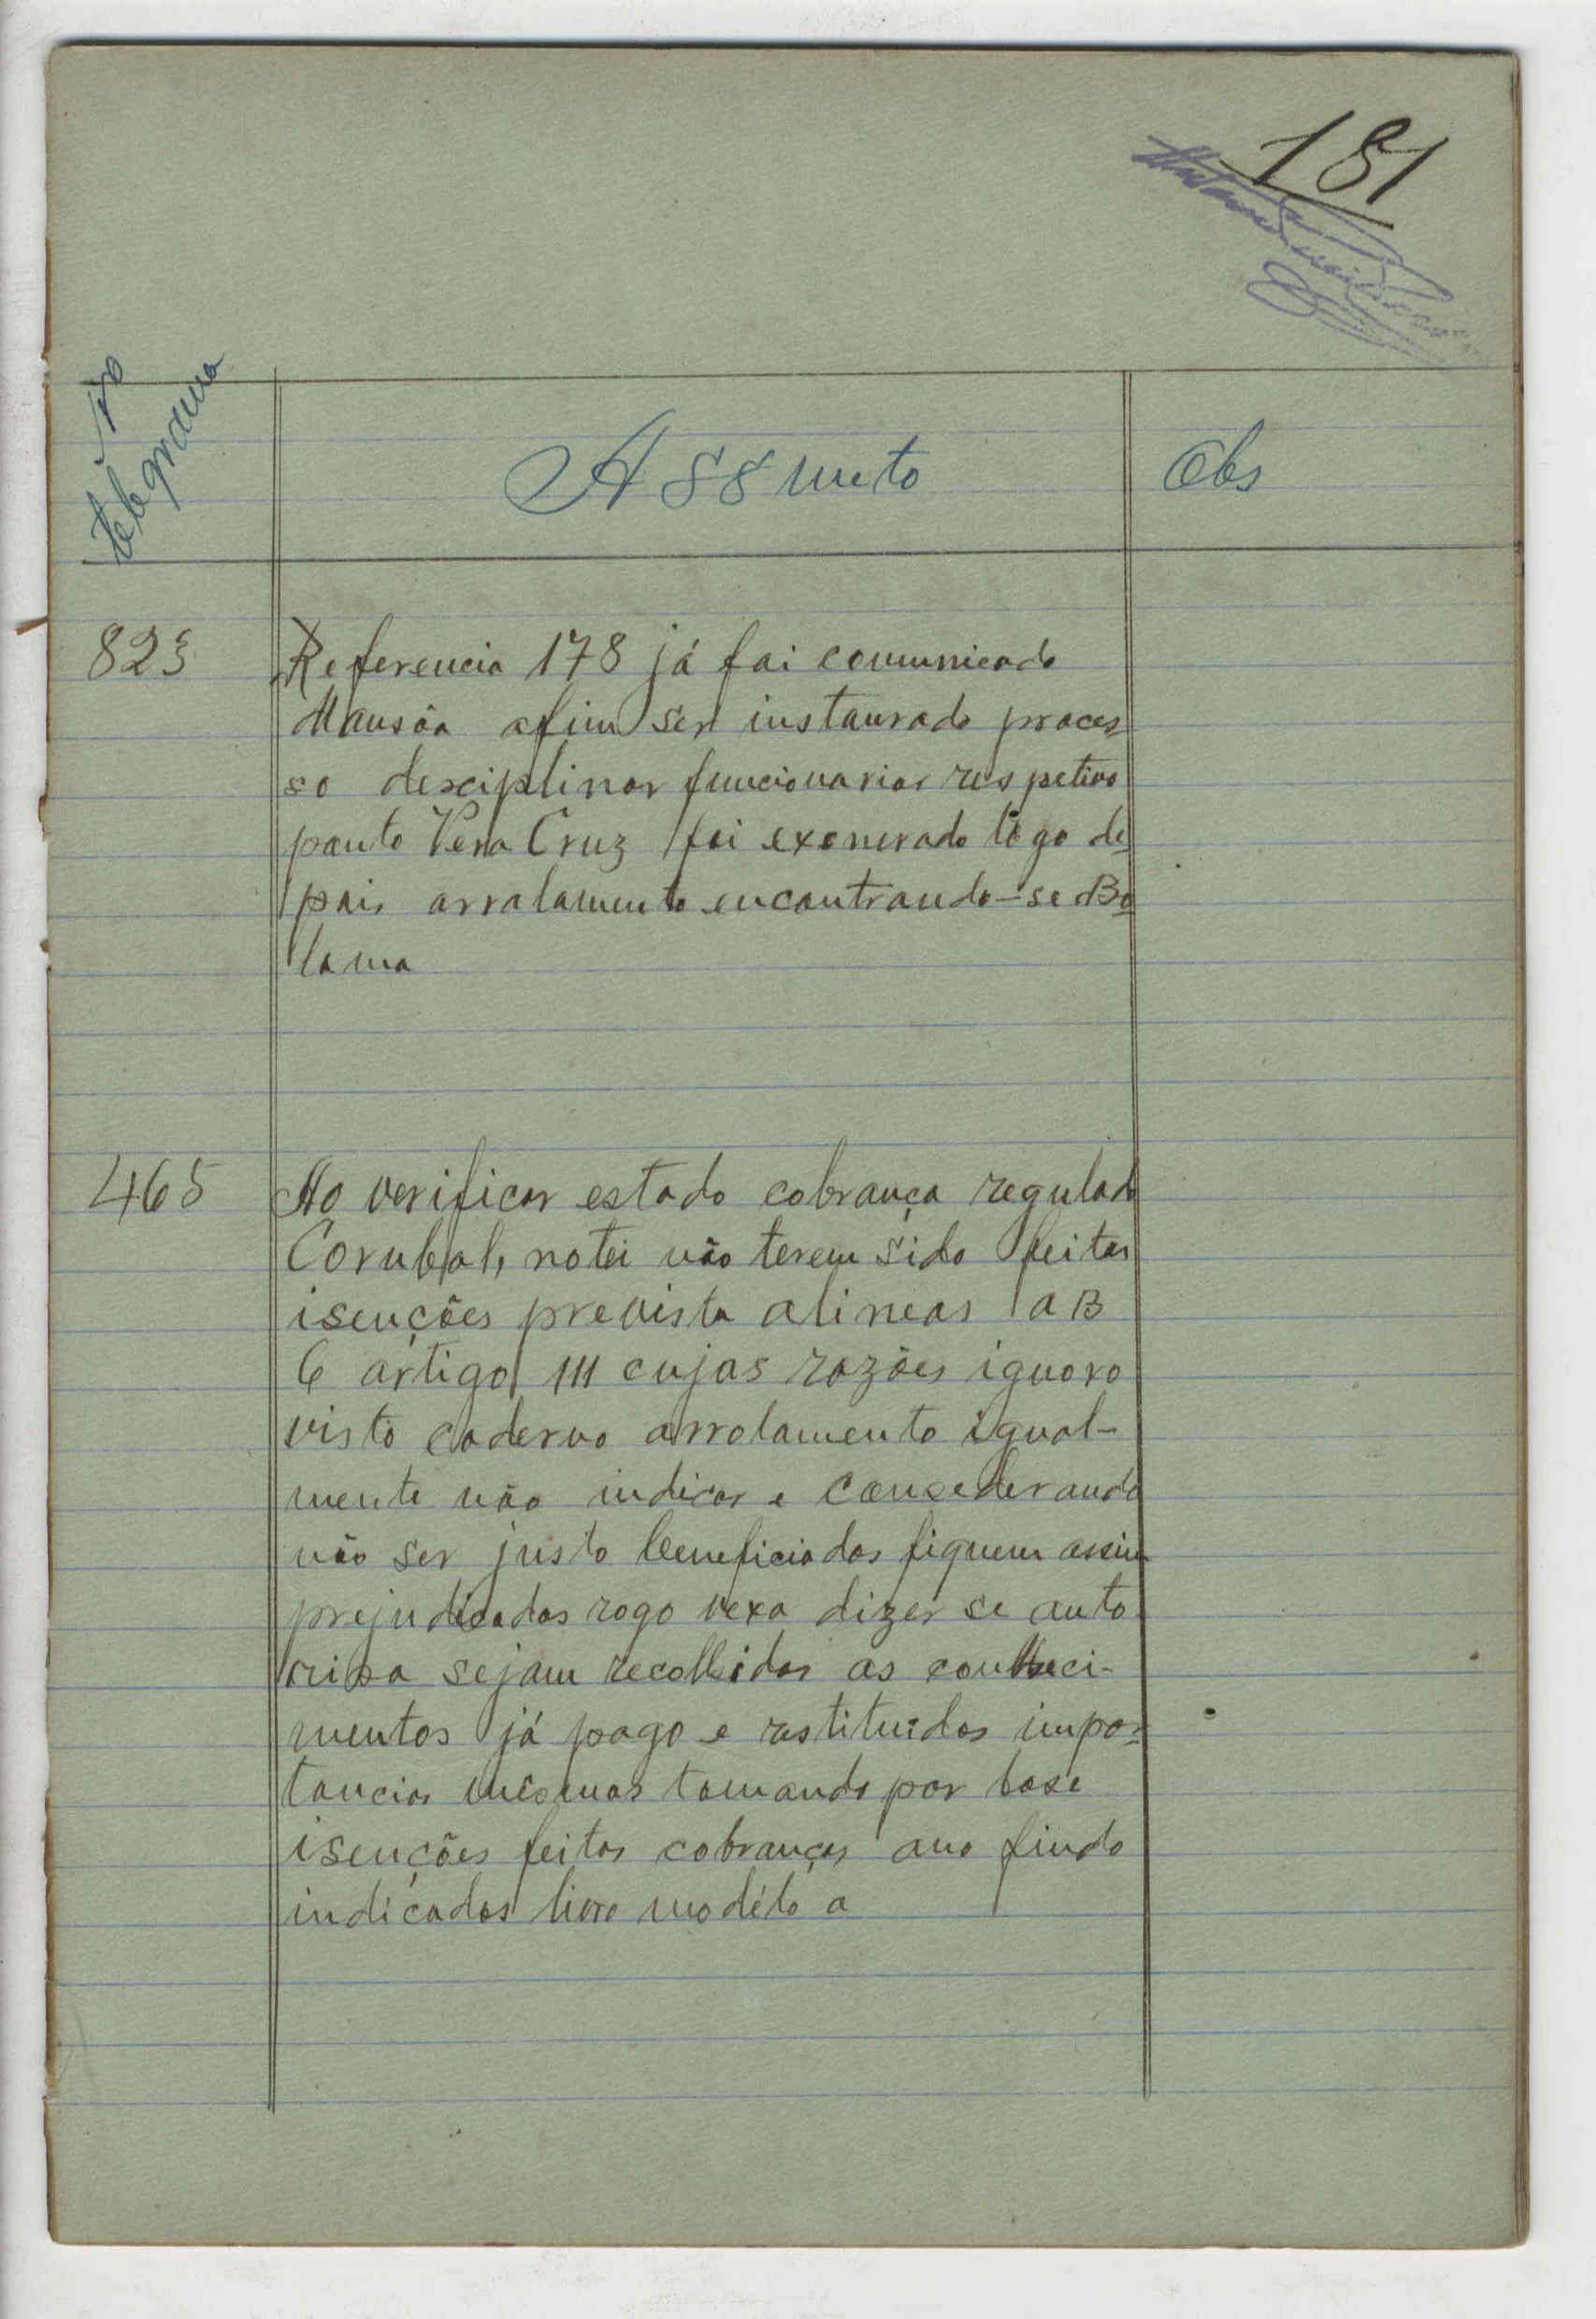 181
No
telegrama
Assunto
Obs
823
Referencia 178 já foi comunicado
Mansôa afim ser instaurado proces
so desciplinar funcionarios respetivo
ponto Vera Cruz foi exonerado logo de
pois arrolamento encontrando-se Bo
lama
465
Ao verificar estado cobrança regulado
Corubal, notei não terem sido feitas
isenções prevista alineas a B
C artigo 111 cujas razões ignoro
visto caderno arrolamento igual-
mente não indicar e consederando
não ser justo beneficiados fiquem assim
prejudicados rogo vexa dizer se auto
risa sejam recolhidos os conheci-
mentos já pago e restituidos impor
tancias mêsmas tomando por base
isenções feitas cobranças ano findo
indicados livro modélo a